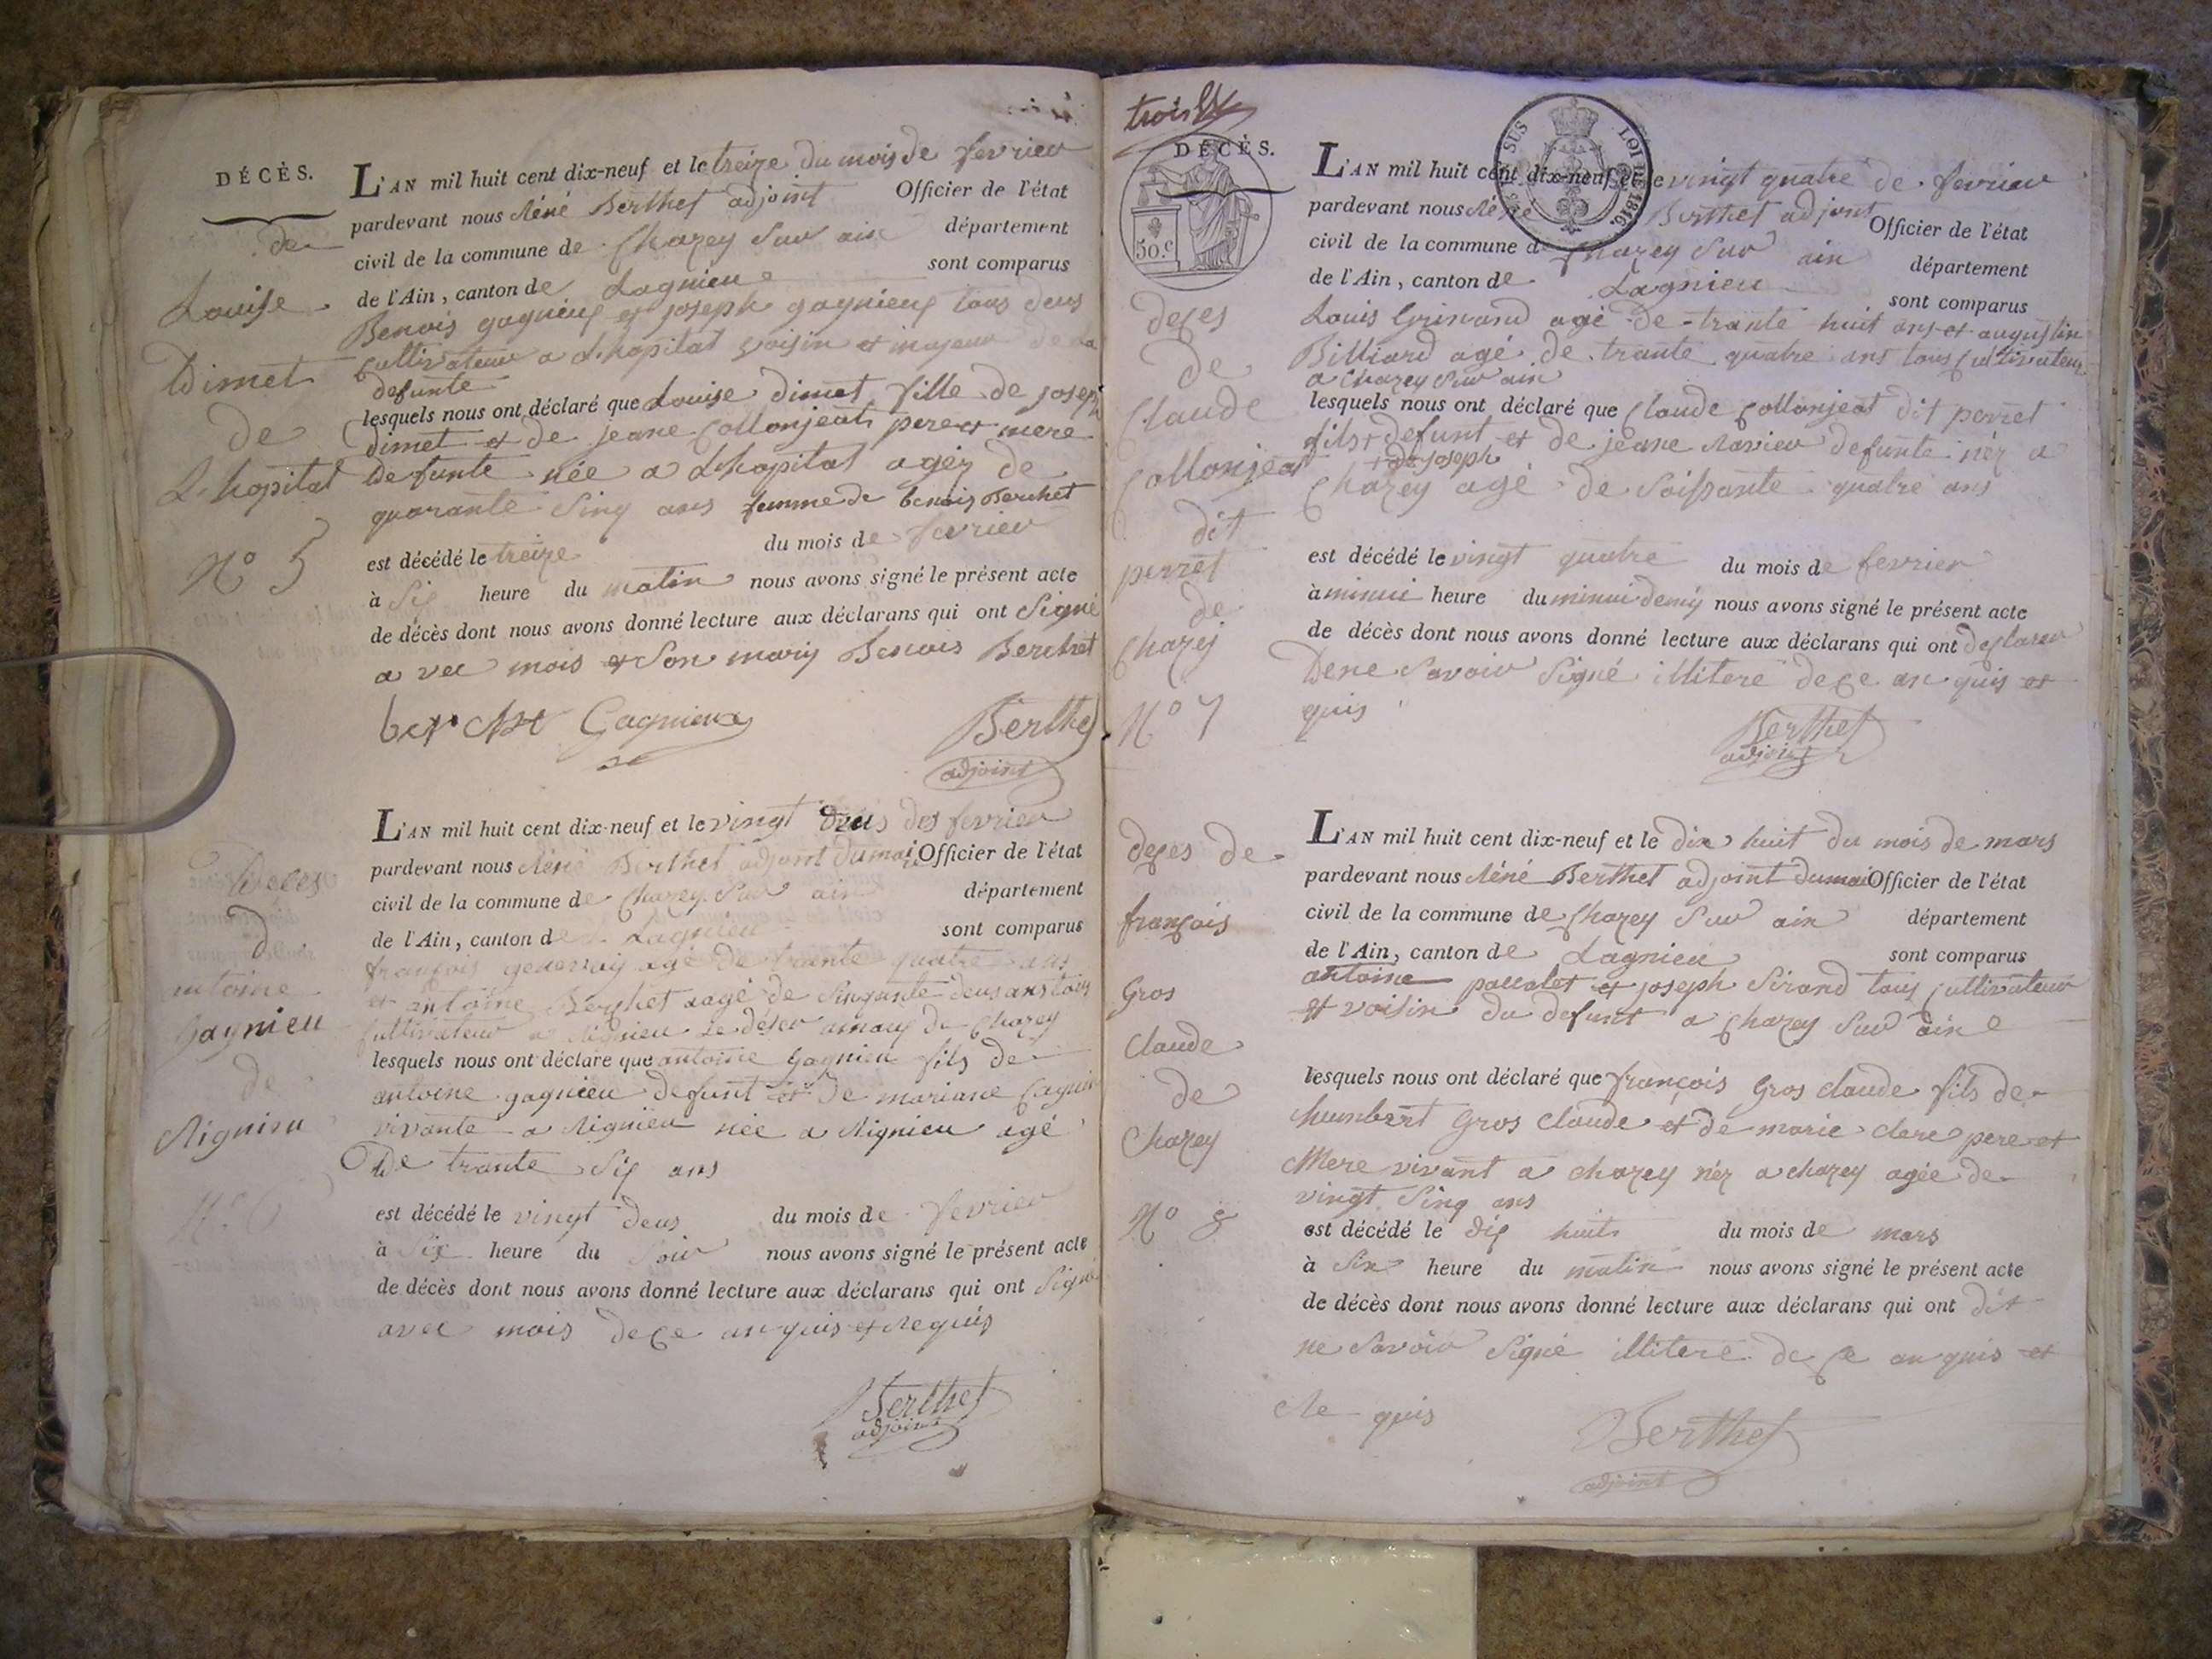 DÉCÈS.
de
Louise
Dimet
de
L'hopital
N° 5
L'AN mil huit cent dix-neuf et le treize du mois de fevrier
pardevant nous Réné Berthet adjoint Officier de l'état
civil de la commune de Chazey Sur ain département
de l'Ain, canton de Lagnieu sont comparus
Benois gagnieux et joseph gagnieux tous deus
cultivateur a L'hopital voisin et majeur de la
defunte
lesquels nous ont déclaré que Louise dimet fille de joseph
dimet et de jeane Collonjeat pere et mere
defunte née a L'hopital agéz de
quarante Sinq ans femme de benois Berchet
est décédé le treize du mois de fevrier
à Six heure du matin nous avons signé le présent acte
de décès dont nous avons donné lecture aux déclarans qui ont Signé
avec mois et Son mary Benois Berchet
Gagnieux Berthet
adjoint
Deces
D
antoine
Gagnieu
de
Rignieu
N° 6
L'AN mil huit cent dix-neuf et le vingt deus des fevrier
pardevant nous Réné Berthet adjoint du mai Officier de l'état
civil de la commune de Chazey Sur ain département
de l'Ain, canton de Lagnieu sont comparus
françois genevay agé de trante quatre ans
et antoine Berchet agé de Sinquante deus ans tous
cultivateur a Rignieu Le déser amaux de Chazey
lesquels nous ont déclaré que antoine Gagnieu fils de
antoine gagnieu defunt et de mariane
vivante a Rignieu née a Rignieu agé
De trante Six ans
est décédé le vingt deus du mois de fevrier
à Six heure du Soir nous avons signé le présent acte
de décès dont nous avons donné lecture aux déclarans qui ont Signé
avec mois de ce anquis et Requis
Berthet
adjoint
trois
DÉCÈS.
50.c
SUS LOI DE 1816.
deces
de
Claude
Collonjeat
dit
perret
de
Chazey
N° 7
L'AN mil huit cent dix-neuf et le vingt quatre de fevrier
pardevant nous Réné Berthet adjoint Officier de l'état
civil de la commune de Chazey Sur ain département
de l'Ain, canton de Lagnieu sont comparus
Louis Grinand agé de trante huit ans et augustin
Billiard agé de trante quatre ans tous cultivateur
a Chazey Sur ain
lesquels nous ont déclaré que Claude Collonjeat dit perret
fils + defunt et de jeane Ravier defunte néz a
+ de joseph
Chazey agé de Soissante quatre ans
est décédé le vingt quatre du mois de fevrier
à minui heure du minui demy nous avons signé le présent acte
de décès dont nous avons donné lecture aux déclarans qui ont declarer
De ne Savoir Signé illiteré de ce an quis et
quis
Berthet
adjoint
deces de
françois
Gros
claude
de
Chazey
N° 8
L'AN mil huit cent dix-neuf et le dix huit du mois de mars
pardevant nous Réné Berthet adjoint du mai Officier de l'état
civil de la commune de Chazey Sur ain département
de l'Ain, canton de Lagnieu sont comparus
antoine pallatet et joseph Sirand tous cultivateur
et voisin du defunt a Chazey Sur ain
lesquels nous ont déclaré que françois Gros claude fils de
humbert Gros claude et de marie clere pere et
Mere vivant a chazey néz a chazey agée de
vingt Sinq ans
est décédé le dix huit du mois de mars
à Six heure du matin nous avons signé le présent acte
de décès dont nous avons donné lecture aux déclarans qui ont dit
ne Savoir Signé illiteré de ce an quis et
Re quis
Berthet
adjoint